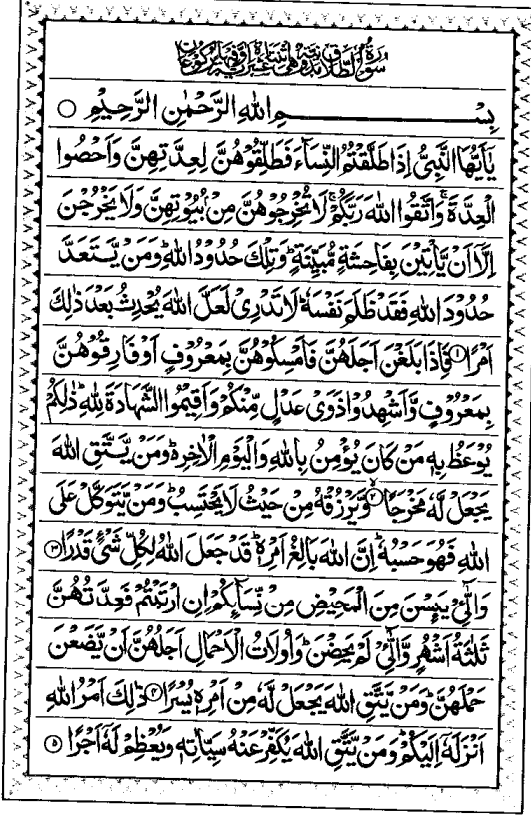 سُوْرَةُ الطَّلَاقِ مَدَنِيَّةٌ وَّهِيَ
بِسْمِ اللهِ الرَّحْمٰنِ الرَّحِيْمِ ○
يٰۤاَيُّهَا النَّبِىُّ اِذَا طَلَّقْتُمُ النِّسَآءَ فَطَلِّقُوْهُنَّ لِعِدَّتِهِنَّ وَاَحْصُوا
الْعِدَّةَ ۚ وَاتَّقُوا اللهَ رَبَّكُمْ ۚ لَا تُخْرِجُوْهُنَّ مِنْۢ بُيُوْتِهِنَّ وَلَا يَخْرُجْنَ
اِلَّاۤ اَنْ يَّاْتِيْنَ بِفَاحِشَةٍ مُّبَيِّنَةٍ ؕ وَتِلْكَ حُدُوْدُ اللهِ ؕ وَمَنْ يَّتَعَدَّ
حُدُوْدَ اللهِ فَقَدْ ظَلَمَ نَفْسَهٗ ؕ لَا تَدْرِىْ لَعَلَّ اللهَ يُحْدِثُ بَعْدَ ذٰلِكَ
اَمْرًا ۝۱ فَاِذَا بَلَغْنَ اَجَلَهُنَّ فَاَمْسِكُوْهُنَّ بِمَعْرُوْفٍ اَوْ فَارِقُوْهُنَّ
بِمَعْرُوْفٍ وَّاَشْهِدُوْا ذَوَىْ عَدْلٍ مِّنْكُمْ وَاَقِيْمُوا الشَّهَادَةَ لِلّٰهِ ؕ ذٰلِكُمْ
يُوْعَظُ بِهٖ مَنْ كَانَ يُؤْمِنُ بِاللهِ وَالْيَوْمِ الْاٰخِرِ ؕ وَمَنْ يَّتَّقِ اللهَ
يَجْعَلْ لَّهٗ مَخْرَجًا ۝۲ وَّيَرْزُقْهُ مِنْ حَيْثُ لَا يَحْتَسِبُ ؕ وَمَنْ يَّتَوَكَّلْ عَلَى
اللهِ فَهُوَ حَسْبُهٗ ؕ اِنَّ اللهَ بَالِغُ اَمْرِهٖ ؕ قَدْ جَعَلَ اللهُ لِكُلِّ شَىْءٍ قَدْرًا ۝۳
وَالّٰٓـىِٔيْ يَئِسْنَ مِنَ الْمَحِيْضِ مِنْ نِّسَآئِكُمْ اِنِ ارْتَبْتُمْ فَعِدَّتُهُنَّ
ثَلٰثَةُ اَشْهُرٍ وَّالّٰٓـىِٔيْ لَمْ يَحِضْنَ ؕ وَاُولَاتُ الْاَحْمَالِ اَجَلُهُنَّ اَنْ يَّضَعْنَ
حَمْلَهُنَّ ؕ وَمَنْ يَّتَّقِ اللهَ يَجْعَلْ لَّهٗ مِنْ اَمْرِهٖ يُسْرًا ۝۴ ذٰلِكَ اَمْرُ اللهِ
اَنْزَلَهٗۤ اِلَيْكُمْ ؕ وَمَنْ يَّتَّقِ اللهَ يُكَفِّرْ عَنْهُ سَيِّاٰتِهٖ وَيُعْظِمْ لَهٗۤ اَجْرًا ۝۵